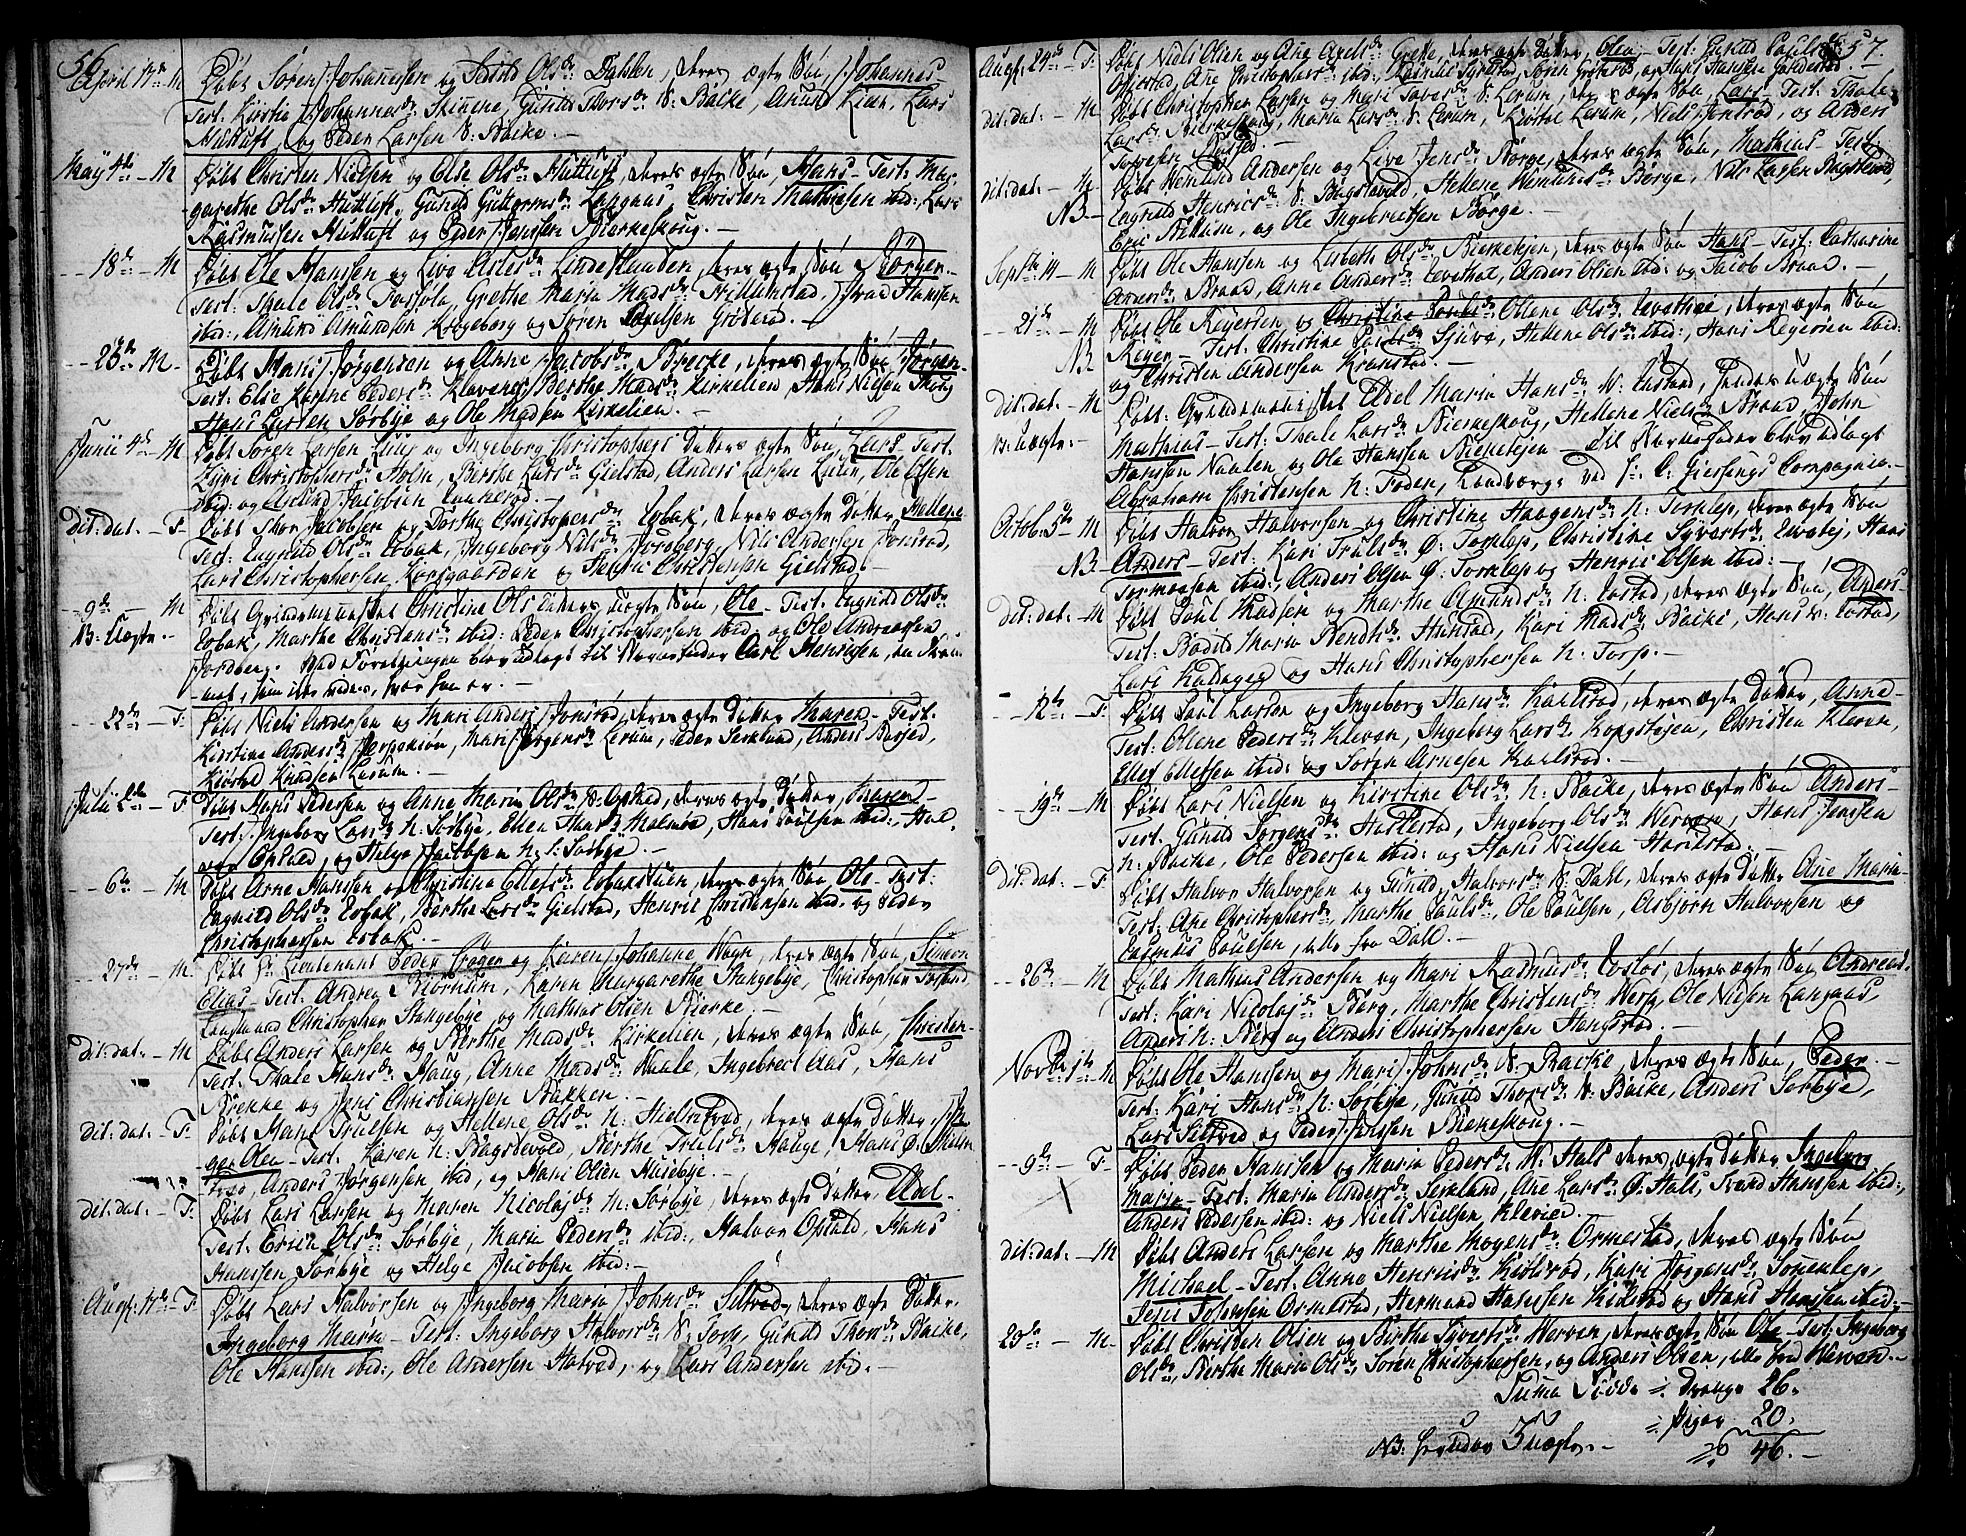 56
April 17de M Døbt Søren Johannesen og Sidsel Olsdr Dahlen, deres ægte Søn, Johannes
Test: Kirstie Johannesdr Skinene, Gunild Thorsdr N. Backe, Amund Lien, Lars
Huttuft og Peder Larsen N. Backe. —
May 4de — M Døbt Christen Nielsen og Else Olsdr Huttuft, deres ægte Søn, Hans — Test: Mar-
grethe Olsdr Huttuft, Gunild Guttormsdr Langaas, Christen Mathiesen ibid:, Lars
Rasmussen Huttuft og Peder Jensen Bierkeskoug. —
18de — M Døbt Ole Hansen og Live Olsdr Lindehaugen, deres ægte Søn Jörgen —
Test: Thale Olsdr Fosseløe, Grethe Maria Madsdr Hillenstad, Ifvar Hansen
ibid:, Amund Amundsen Krogeborg og Søren Axelsen Grøterød. —
28de M. Døbt Hans Jørgensen og Anne Jacobsdr Brecke, deres ægte Søn Jørgen —
Test: Else Karine Pedersdr Klavenes, Berthe Madsdr Kirkelien, Hans Nielsen Skoug
Hans Larsen Sørbye og Ole Madsen Kirkelien. —
Junii 4de — M Døbt Søren Larsen Lien og Ingeborg Christophers Datters ægte Søn, Lars — Test:
Kari Christophersdr Holm, Berthe Larsdr Gielstad, Anders Larsen Lien, Ole Olsen
ibid: og Amund Jacobsen Laukerød. —
Dit: dat. — F. Døbt Thor Jacobsen og Dorthe Christophersdr Esbak, deres ægte Datter, Hellene
Test: Engnild Olsdr Esbak, Ingeborg Nilsdr Forsberg, Nils Andersen Jonsrød,
Lars Christophersen, Korsgaarden og Henric Christensen Gielstad. —
9de — M Døbt Qvindemennesket Christine Ols Datters uægte Søn, Ole — Test: Engnild Olsdr
NB. Uægte. — Esbak, Marthe Christensdr ibid: Peder Christophersen ibid: og Ole Andreassen
Jordberg. Ved Forretningen blev udlagt til Barnefader Carl Henrisen, en
mat, som ikke vides, hvor han er. —
22de — F: Døbt Niels Andersen og Mari Anders Jonsrød, deres ægte Datter Maren — Test:
Kirstine Andersdr Jerpekiøn, Mari Jørgensdr Lerum, Peder Serklund, Anders Børsed,
Kiøstel Knudsen Lerum. —
Julii 2den — F Døbt Hans Pedersen og Anne Maria Olsdr N. Opstad, deres ægte Datter, Maren —
Test: Ingebor Larsdr N. Sørbye, Ellen Hansdr Holmene, Hans Poulsen ibid:, Hal-
vor Opstad, og Helge Jacobsen N: S: Sørbye. —
6te — M Døbt Arne Hansen og Christina Ellefsdr Esbakstuen, deres ægte Søn Ole — Test:
Engnild Olsdr Esbak, Berthe Larsdr Gielstad, Henric Christensen ibid: og Peder
Christophersen Esbak. —
27de — M. Døbt Hr Lieutenant Peder Frøger og Karen Johanne Vogn, deres ægte Søn, Simeon
Elias — Test: Andrea Biørnum, Karen Margarethe Stangebye, Christopher
Christopher Stangebye, og Mathias Olsen Bierke. —
dit: dat. — M Døbt Anders Larsen og Berthe Madsdr Kirkelien, deres ægte Søn, Christen —
Test: Thale Hansdr Haug, Anne Madsdr Waale, Ingebret Aas, Hans
Brekke og Jens Christiansen Bakken. —
dit: dat. — F Døbt Hans Truelsen og Hellene Olsdr N: Hieltefred, deres ægte Datter, In-
ger Olea — Test: Karen N. Bagsdevold, Berthe Trulsdr Hauge, Hans Ø:
Anders Jørgensen ibid, og Hans Olsen Husebye. —
dit: dat. — F. Døbt Lars Larsen og Maren Nicolajsdr N: Sørbye, deres ægte Datter, Axel —
Test: Ersen Olsdr Sørbye, Maria Pedersdr ibid:, Halvor Opstad, Hans
Hansen Sørbye og Helge Jacobsen ibid: —
Aug: 17de — F. Døbt Lars Halvorsen og Ingeborg Maria Johnsdr Siltved, deres ægte Datter,
Ingeborg Maria — Test: Ingeborg Halvorsdr N: Torp, Gunild Thorsdr Backe,
Ole Hansen ibid:, Ole Andersen Hatved, og Lars Andersen ibid. —
57.
Aug: 24de — F. Døbt Niels Olsen og Ane Axelsdr Grette, deres ægte Datter, Olea — Test: Gunild Poulsdr
Opsestad, Ane Christophersdr ibid:, Søren Grøterød, og Hans Hansen
dit: dat. — M Døbt Christopher Larsen og Mari Torersdr N: Lerum, deres ægte Søn, Lars — Test: Thale
Larsdr Bierkeskoug, Maria Larsdr N. Lerum, Kiøstel Lerum, Niels Jonsrød, og Anders
Torersen
dit: dat. — M. Døbt Wemund Andersen og Live Jensdr Børge, deres ægte Søn, Mathias — Test:
NB — Engnild Henricsdr N: Bagsdevold, Hellene Wemundsdr Børge, Nils Larsen Bagsdevold,
Eric Bettum, og Ole Ingebretsen Børge. —
Septbr 14 — M Døbt Ole Hansen og Lisbeth Olsdr Bierketejen, deres ægte Søn Hans — Test: Catharine
Andersdr Braae, Anne Andersdr Levethal, Anders Olsen ibid: og Jacob Braae. —
21de — M Døbt Ole Reyersen og Christine Poulsdr Ollene Olsdr Levethal, deres ægte Søn
NB Reyer — Test: Christine Poulsdr Sjuve, Hellene Olsdr ibid:, Hans Reyersen ibid:
og Christen Andersen Kranstad. —
dit: dat. — M Døbt Qvindemennisket Eldel Maria Hansdr W. Eestad, hendes uægte Søn
NB: Uægte: — Mathias — Test: Thale Larsdr Bierkeskoug, Hellene Nielsdr Braae, John
Hansen Naalen og Ole Hansen Bierketejen — Til Barnefader blev udlagt
Abraham Christensen N: Foden, Landværge ved H: C: Giessings Compagnie —
Octob: 5te — M Døbt Halvor Halvorsen og Christine Haagensdr N: Torklep, deres ægte Søn
NB — Anders — Test: Kari Trulsdr Ø: Torklep, Christine Syvertsdr Levetej, Hans
Tormoesen ibid:, Anders Olsen Ø: Torklep og Henric Olsen ibid: —
dit: dat: — M Døbt Poul Madsen og Marthe Amundsdr N. Eestad, deres ægte Søn, Anders —
Test: Bodild Maria Bendtsdr Hanstad, Kari Madsdr Backe, Hans N: Eestad,
Lars Kadegeg og Hans Christophersen N: Torp. —
12te — F. Døbt Poul Larsen og Ingeborg Hansdr Karlsrød, deres ægte Datter, Anne —
Test: Ollene Pedersdr Klever, Ingeborg Larsdr Kongstejen, Christen Klever,
Ellef Ellefsen ibid: og Søren Arnesen Karlsrød. —
19de — M Døbt Lars Nielsen og Kirstine Olsdr N: Backe, deres ægte Søn Anders —
Test: Gunild Torgersdr Harlestad, Ingeborg Olsdr Werven, Hans Jensen
N: Backe, Ole Pedersen ibid: og Hans Nielsen Harlstad. —
Dit: dat. — F. Døbt Halvor Halvorsen og Gunild Halvorsdr N. Dahl, deres ægte Datter Ane Maria —
Test: Ane Christophersdr, Marthe Poulsdr, Ole Poulsen, Asbjørn Halvorsen og
Rasmus Poulsen, alle fra Dahl. —
26de — M Døbt Mathias Andersen og Mari Rasmusdr Foslos, deres ægte Søn, Andreas.
Test: Kari Nicolajsdr Berg, Marthe Christensdr Werp, Ole Nielsen Langaas,
Anders N: Berg og Anders Christophersen Hangsrød. —
Novbr 1te — M Døbt Ole Hansen og Mari Johnsdr N. Backe, deres ægte Søn, Peder. —
Test: Kari Hansdr N: Sørbye, Gunild Thorsdr N: Backe, Anders Sørbye,
Lars Siltved og Peder Jensen Bierkeskoug. —
9de — F. Døbt Peder Hansen og Maria Pedersdr W. Hals deres ægte Datter Ingeborg
Maria — Test: Maria Andersdr Serklund, Ane Larsdr Ø: Hals, Svend Hansen ibid:,
Anders Pedersen ibid: og Niels Nielsen Klever. —
dit: dat. — M Døbt Anders Larsen og Marthe Mogensdr Ormestad, deres ægte Søn
Michael — Test: Anne Henricsdr Kiølsrød, Kari Jørgensdr Souenlep,
Ormestad, Hermand Hansen Kiilstad og Hans Hansen ibid: —
20de — M — Døbt Christen Olsen og Berthe Syvertsdr Werven, deres ægte Søn Ole — Test: Ingeborg
Olsdr, Berthe Maria Olsdr, Søren Christophersen, og Anders Olsen, alle fra Werven. —
Suma Fødde = Drenge 26.
= Piger 20.
= 46. —
NB: herunder 3 uægte. —